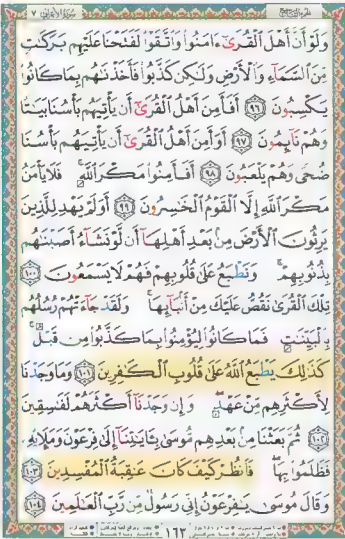 سورة الأعراف ٧
وَلَوْ أَنَّ أَهْلَ ٱلْقُرَىٰٓ ءَامَنُوا۟ وَٱتَّقَوْا۟ لَفَتَحْنَا عَلَيْهِم بَرَكَٰتٍ
مِّنَ ٱلسَّمَآءِ وَٱلْأَرْضِ وَلَٰكِن كَذَّبُوا۟ فَأَخَذْنَٰهُم بِمَا كَانُوا۟
يَكْسِبُونَ ٩٦ أَفَأَمِنَ أَهْلُ ٱلْقُرَىٰٓ أَن يَأْتِيَهُم بَأْسُنَا بَيَٰتًا
وَهُمْ نَآئِمُونَ ٩٧ أَوَأَمِنَ أَهْلُ ٱلْقُرَىٰٓ أَن يَأْتِيَهُم بَأْسُنَا
ضُحًى وَهُمْ يَلْعَبُونَ ٩٨ أَفَأَمِنُوا۟ مَكْرَ ٱللَّهِ ۚ فَلَا يَأْمَنُ
مَكْرَ ٱللَّهِ إِلَّا ٱلْقَوْمُ ٱلْخَٰسِرُونَ ٩٩ أَوَلَمْ يَهْدِ لِلَّذِينَ
يَرِثُونَ ٱلْأَرْضَ مِنۢ بَعْدِ أَهْلِهَآ أَن لَّوْ نَشَآءُ أَصَبْنَٰهُم
بِذُنُوبِهِمْ ۚ وَنَطْبَعُ عَلَىٰ قُلُوبِهِمْ فَهُمْ لَا يَسْمَعُونَ ١٠٠
تِلْكَ ٱلْقُرَىٰ نَقُصُّ عَلَيْكَ مِنْ أَنۢبَآئِهَا ۚ وَلَقَدْ جَآءَتْهُمْ رُسُلُهُم
بِٱلْبَيِّنَٰتِ فَمَا كَانُوا۟ لِيُؤْمِنُوا۟ بِمَا كَذَّبُوا۟ مِن قَبْلُ ۚ
كَذَٰلِكَ يَطْبَعُ ٱللَّهُ عَلَىٰ قُلُوبِ ٱلْكَٰفِرِينَ ١٠١ وَمَا وَجَدْنَا
لِأَكْثَرِهِم مِّنْ عَهْدٍ ۖ وَإِن وَجَدْنَآ أَكْثَرَهُمْ لَفَٰسِقِينَ
١٠٢ ثُمَّ بَعَثْنَا مِنۢ بَعْدِهِم مُّوسَىٰ بِـَٔايَٰتِنَآ إِلَىٰ فِرْعَوْنَ وَمَلَإِي۟هِۦ
فَظَلَمُوا۟ بِهَا ۖ فَٱنظُرْ كَيْفَ كَانَ عَٰقِبَةُ ٱلْمُفْسِدِينَ ١٠٣
وَقَالَ مُوسَىٰ يَٰفِرْعَوْنُ إِنِّى رَسُولٌ مِّن رَّبِّ ٱلْعَٰلَمِينَ ١٠٤
١٦٣